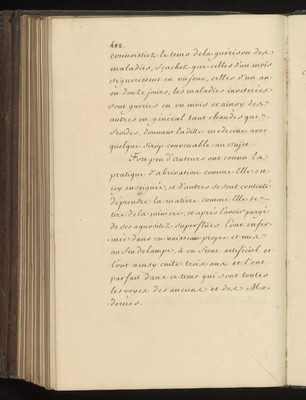 412.
connoistick le tems de la guérison des
maladies, Sçachez que celles d'un mois
se guerissent en un jour, celles d'un an
en douze jours, les maladies inveterées
sont gueries en un mois et ainsy des
autres en général tant chaudes que
froides, donnant laditte médecine avec
quelque sirop convenable au sujet.
Fort peu d'auteurs ont connu la
pratique d'abreviation comme Elle
icy enseigné, et d'autres se sont contenté
de prendre la matiere comme Elle se
tire de la miniere, et apres l'avoir purgé
de ses aquosités superflües l'ont enfer-
mée dans un vaisseau propre et mis
au feu de lampe, à un feu artificiel et
l'ont ainsy cuite trois ans et l'ont
parfait dans ce tems qui sont toutes
les voyes des anciens et des Mo-
dernes.